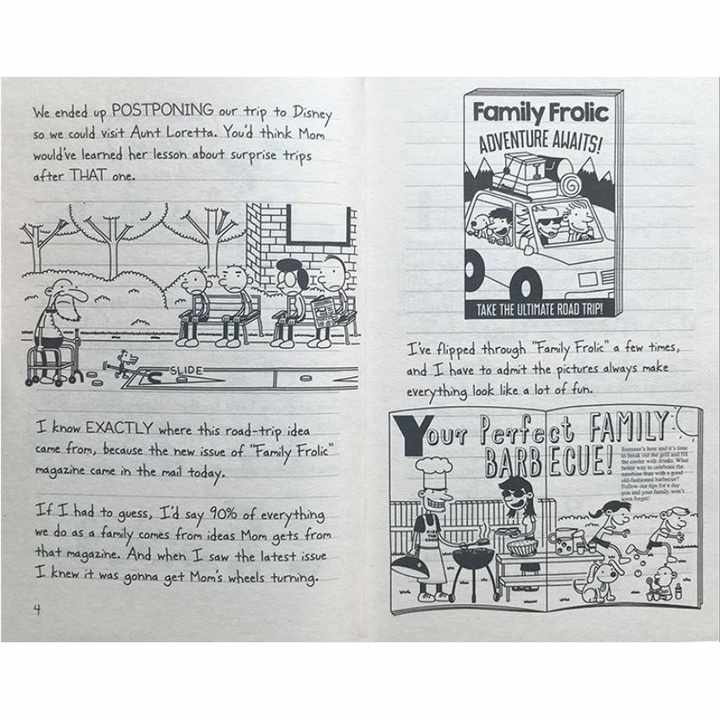 We ended up POSTPONING our trip to Disney
so we could visit Aunt Loretta. You'd think Mom
would've learned her lesson about surprise trips
after THAT one.
SLIDE
I know EXACTLY where this road-trip idea
came from, because the new issue of "Family Frolic"
magazine came in the mail today.
If I had to guess, I'd say 90% of everything
we do as a family comes from ideas Mom gets from
that magazine. And when I saw the latest issue
I knew it was gonna get Mom's wheels turning.
4
Family Frolic
ADVENTURE AWAITS!
TAKE THE ULTIMATE ROAD TRIP!
I've flipped through "Family Frolic" a few times,
and I have to admit the pictures always make
everything look like a lot of fun.
Your Perfect FAMILY
BARBECUE!
Summer's here and it's time
to break out the grill and fill
the cooler with drinks. What
better way to celebrate the
sunshine than with a good
old-fashioned barbecue?
Follow our tips for a day
you and your family won't
soon forget!